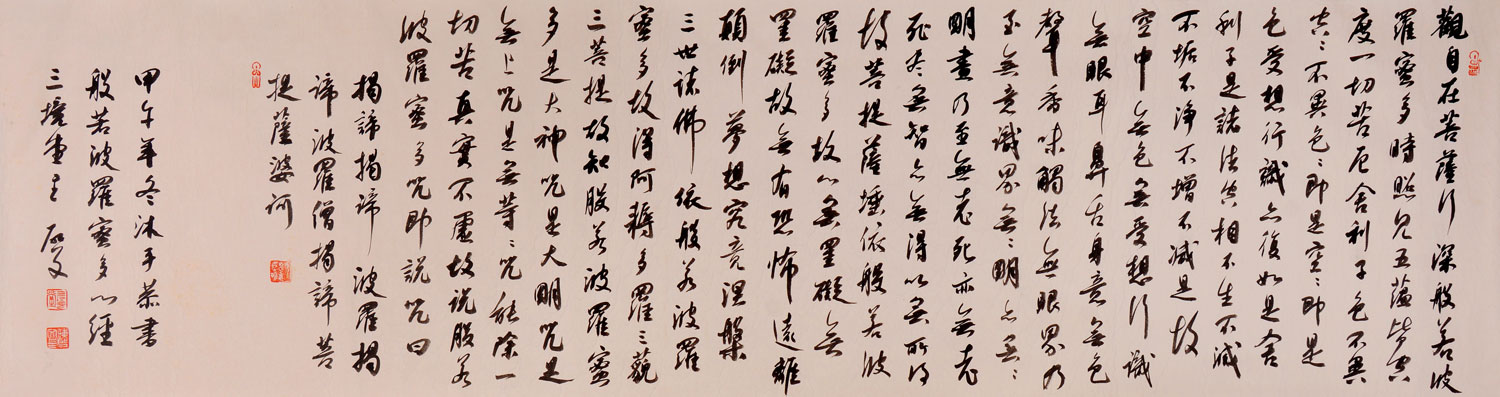 觀自在菩薩行深般若波
羅蜜多時照見五蘊皆空
度一切苦厄舍利子色不異
空〻不異色〻即是空〻即是
色受想行識亦復如是舍
利子是諸法空相不生不滅
不垢不淨不增不減是故
空中無色無受想行識
無眼耳鼻舌身意無色
聲香味觸法無眼界乃
至無意識界無〻明亦無〻
明盡乃至無老死亦無老
死盡無智亦無得以無所得
故菩提薩埵依般若波
羅蜜多故心無罣礙無
罣礙故無有恐怖遠離
顛倒夢想究竟涅槃
三世諸佛依般若波羅
蜜多故得阿耨多羅三藐
三菩提故知般若波羅蜜
多是大神咒是大明咒是
無上咒是無等〻咒能除一
切苦真實不虛故說般若
波羅蜜多咒即說咒曰
揭諦揭諦波羅揭
諦波羅僧揭諦菩
提薩婆訶
甲午年冬沐手恭書
般若波羅蜜多心經